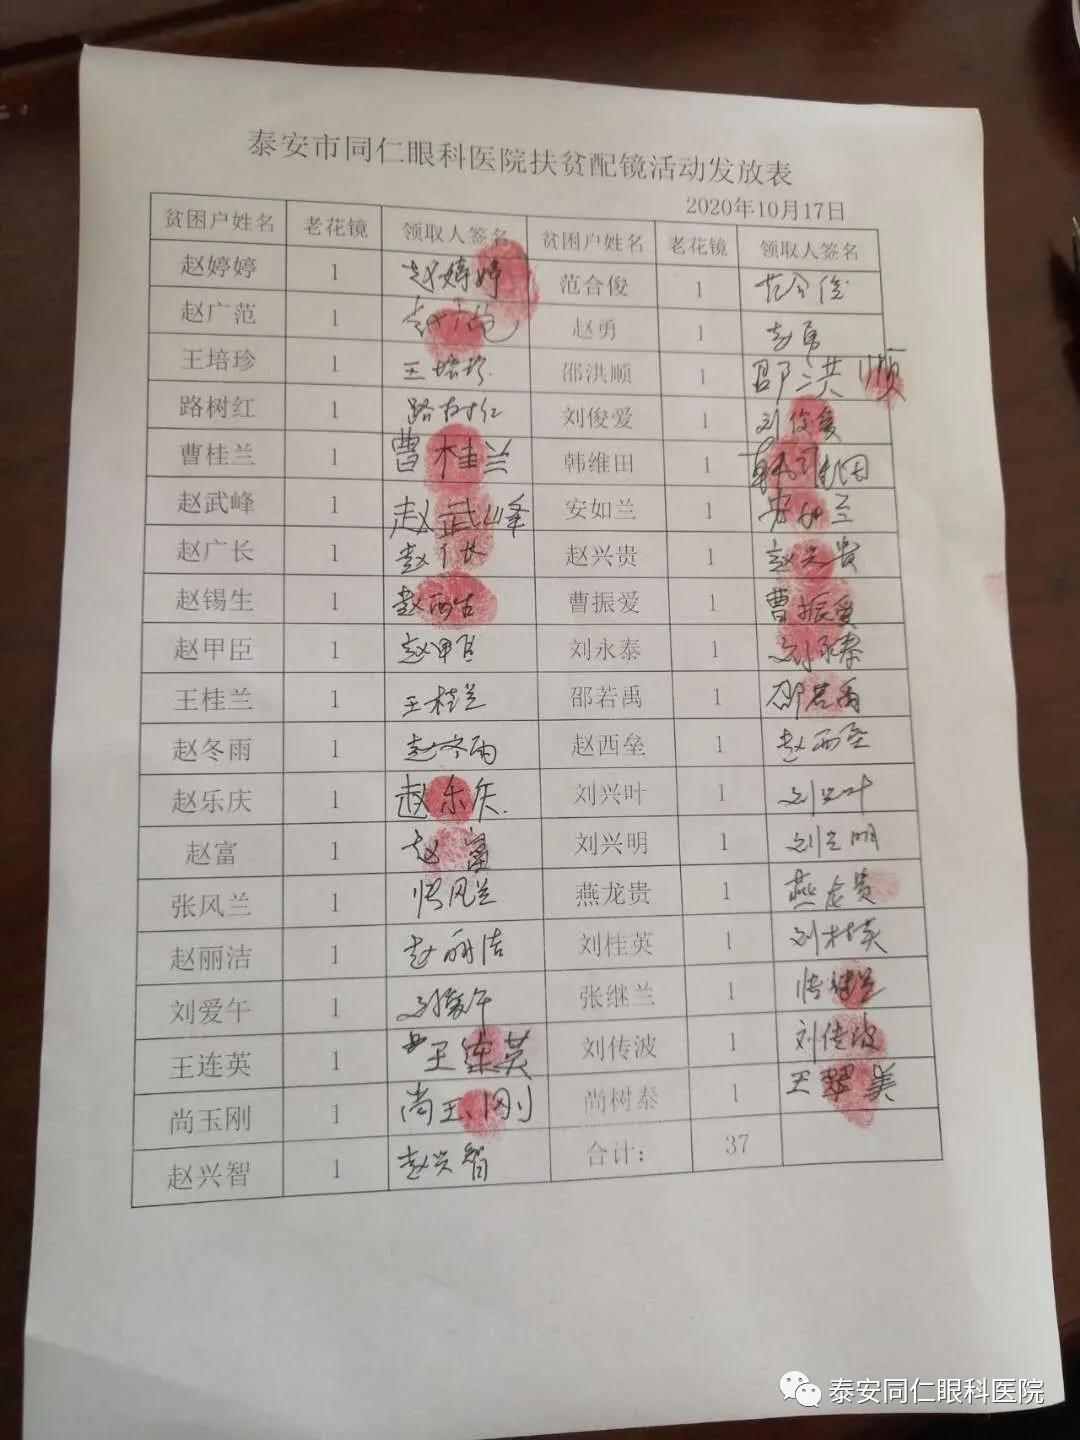 泰安市同仁眼科医院扶贫配镜活动发放表
2020年10月17日
贫困户姓名 老花镜 领取人签名 贫困户姓名 老花镜 领取人签名
赵婷婷 1 赵婷婷 范合俊 1 范合俊
赵广范 1 赵广范 赵勇 1 赵勇
王培珍 1 王培珍 邵洪顺 1 邵洪顺
路树红 1 路树红 刘俊爱 1 刘俊爱
曹桂兰 1 曹桂兰 韩维田 1 韩维田
赵武峰 1 赵武峰 安如兰 1 安如兰
赵广长 1 赵广长 赵兴贵 1 赵兴贵
赵锡生 1 赵西生 曹振爱 1 曹振爱
赵甲臣 1 赵甲臣 刘永泰 1 刘永泰
王桂兰 1 王桂兰 邵若禹 1 邵若禹
赵冬雨 1 赵冬雨 赵西垒 1 赵西垒
赵乐庆 1 赵乐庆 刘兴叶 1 刘兴叶
赵富 1 赵富 刘兴明 1 刘兴明
张风兰 1 张风兰 燕龙贵 1 燕龙贵
赵丽洁 1 赵丽洁 刘桂英 1 刘桂英
刘爱午 1 刘爱午 张继兰 1 张继兰
王连英 1 王连英 刘传波 1 刘传波
尚玉刚 1 尚玉刚 尚树泰 1 王翠美
赵兴智 1 赵兴智 合计： 37
泰安同仁眼科医院